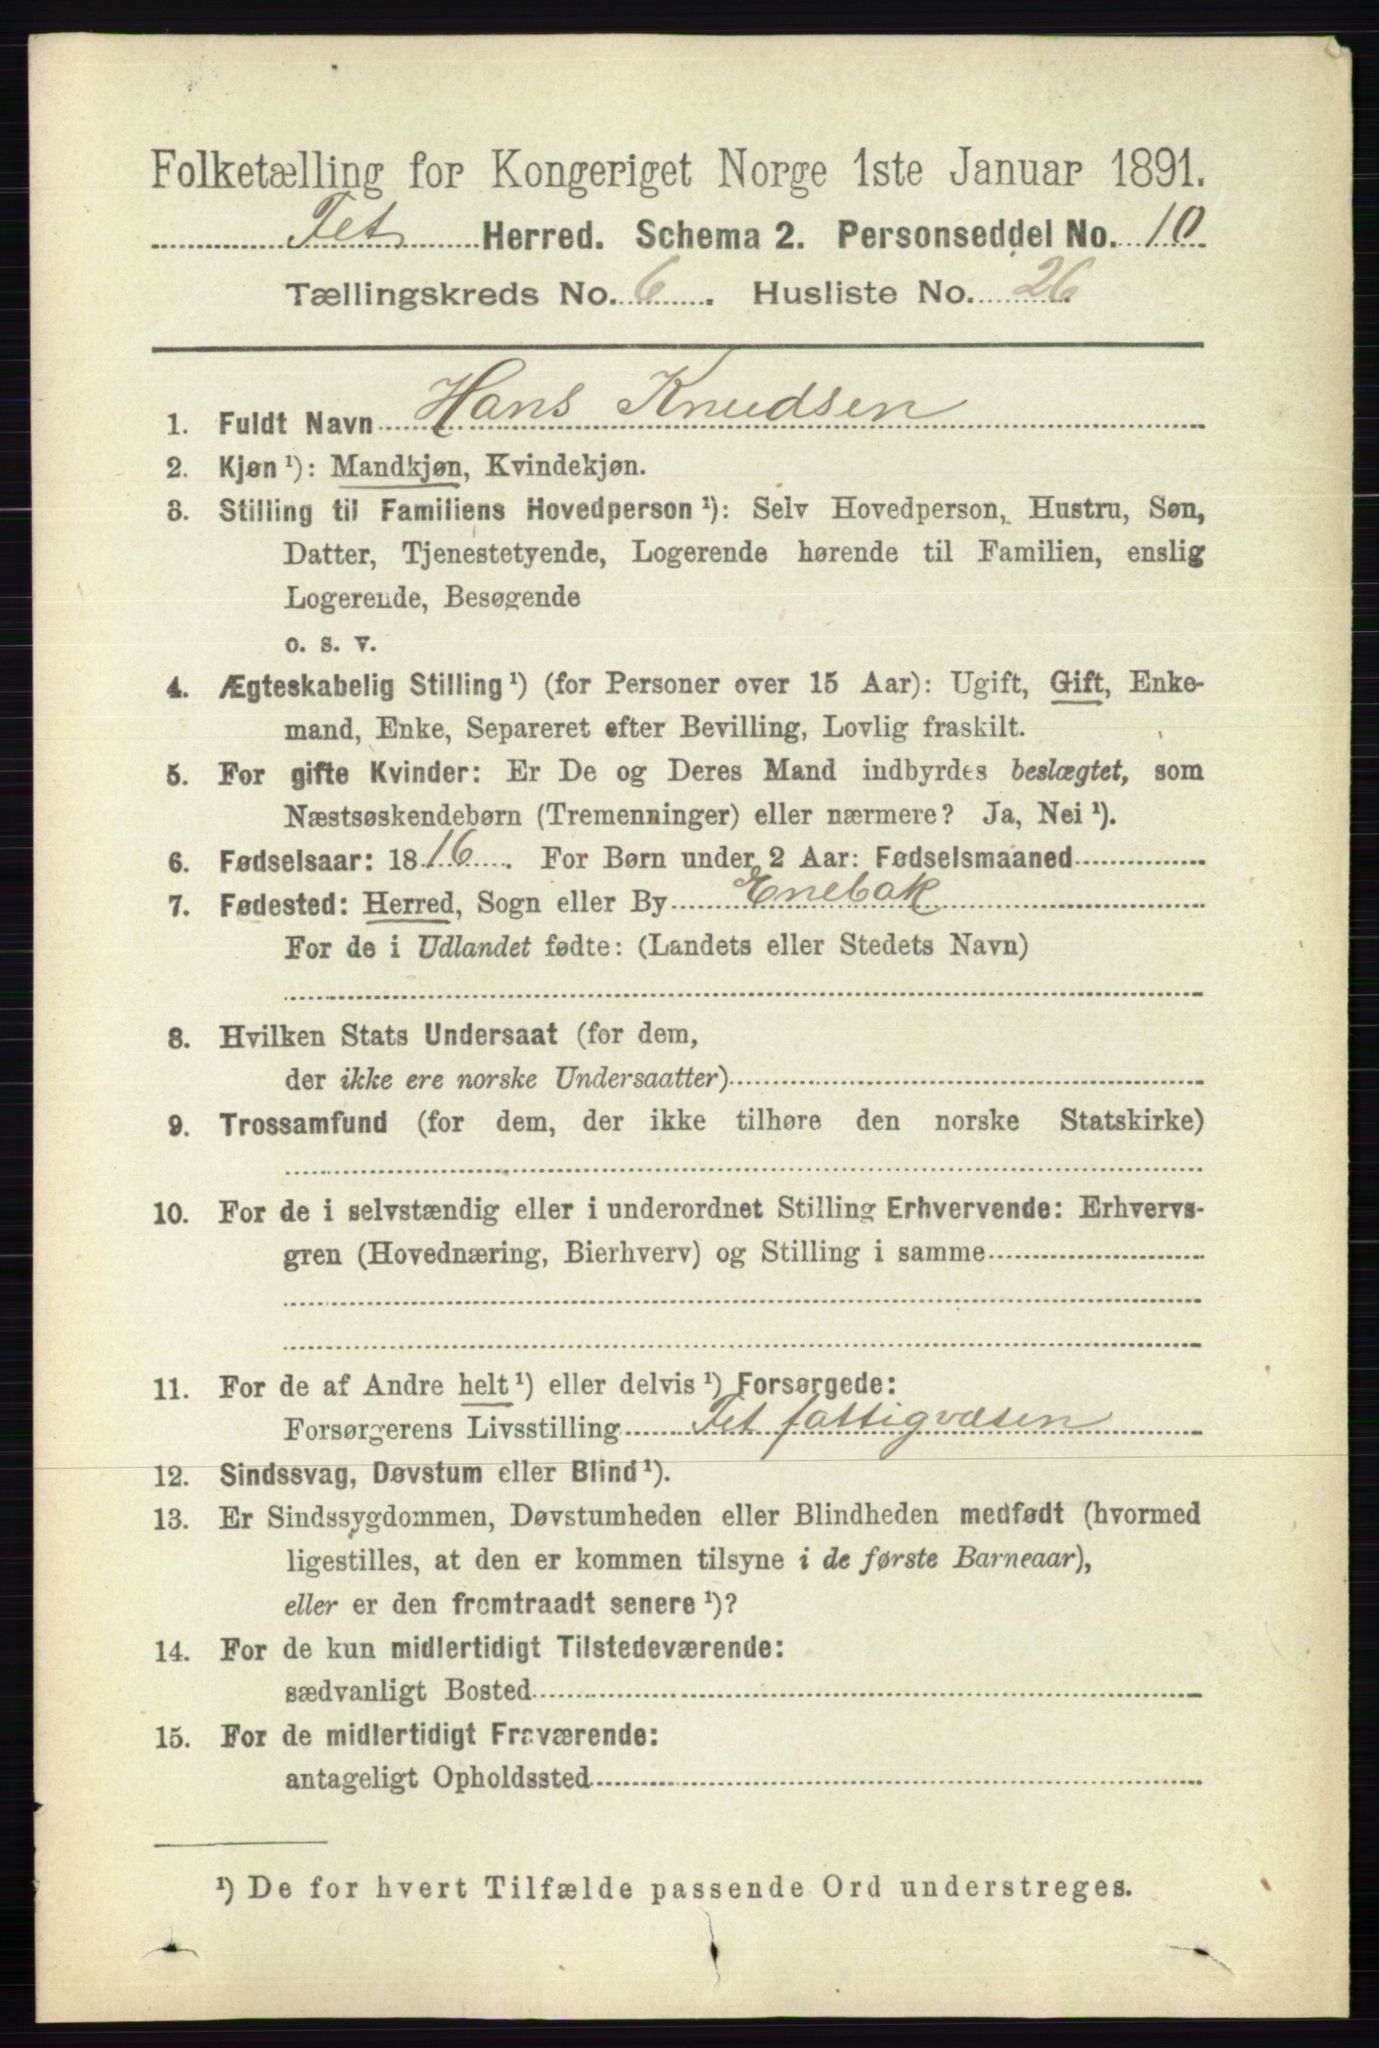 Folketælling for Kongeriget Norge 1ste Januar 1891.
Fet Herred. Schema 2. Personseddel No. 10
Tællingskreds No. 6. Husliste No. 26
1. Fuldt Navn Hans Knudsen
2. Kjøn ¹): Mandkjøn, Kvindekjøn.
3. Stilling til Familiens Hovedperson ¹): Selv Hovedperson, Hustru, Søn,
Datter, Tjenestetyende, Logerende hørende til Familien, enslig
Logerende, Besøgende
o. s. v.
4. Ægteskabelig Stilling ¹) (for Personer over 15 Aar): Ugift, Gift, Enke-
mand, Enke, Separeret efter Bevilling, Lovlig fraskilt.
5. For gifte Kvinder: Er De og Deres Mand indbyrdes beslægtet, som
Næstsøskendebørn (Tremenninger) eller nærmere? Ja, Nei ¹).
6. Fødselsaar: 1816. For Børn under 2 Aar: Fødselsmaaned
7. Fødested: Herred, Sogn eller By Enebak
For de i Udlandet fødte: (Landets eller Stedets Navn)
8. Hvilken Stats Undersaat (for dem,
der ikke ere norske Undersaatter)
9. Trossamfund (for dem, der ikke tilhøre den norske Statskirke)
10. For de i selvstændig eller i underordnet Stilling Erhvervende: Erhvervs-
gren (Hovednæring, Bierhverv) og Stilling i samme
11. For de af Andre helt ¹) eller delvis ¹) Forsørgede:
Forsørgerens Livsstilling Fet fattigvæsen
12. Sindssvag, Døvstum eller Blind ¹).
13. Er Sindssygdommen, Døvstumheden eller Blindheden medfødt (hvormed
ligestilles, at den er kommen tilsyne i de første Barneaar),
eller er den fremtraadt senere ¹)?
14. For de kun midlertidigt Tilstedeværende:
sædvanligt Bosted
15. For de midlertidigt Fraværende:
antageligt Opholdssted
¹) De for hvert Tilfælde passende Ord understreges.